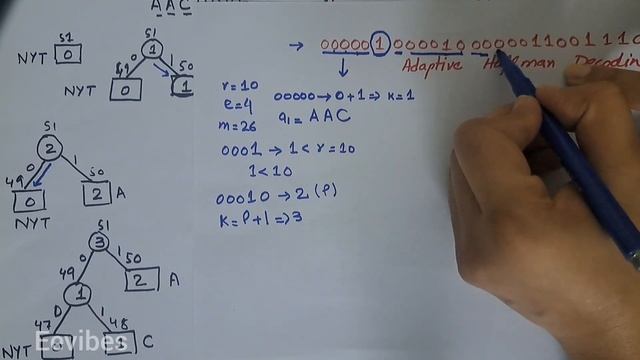 A A C
→ 00000 1 0 00010 0 0000110011 1 0
Adaptive Huffman Decodin
51
NYT 0
1
49 50
NYT 0 1
r=10
e=4
m=26
00000 → 0+1 ⇒ K=1
a1= A A C
0001 → 1 < r=10
1<10
00010 → 2 (P)
K= P+1 =>3
51
2
0 1
49 50
0 2 A
NYT
51
3
0 1
49 50
2 A
1
0 1
47 48
NYT C
Eevibes